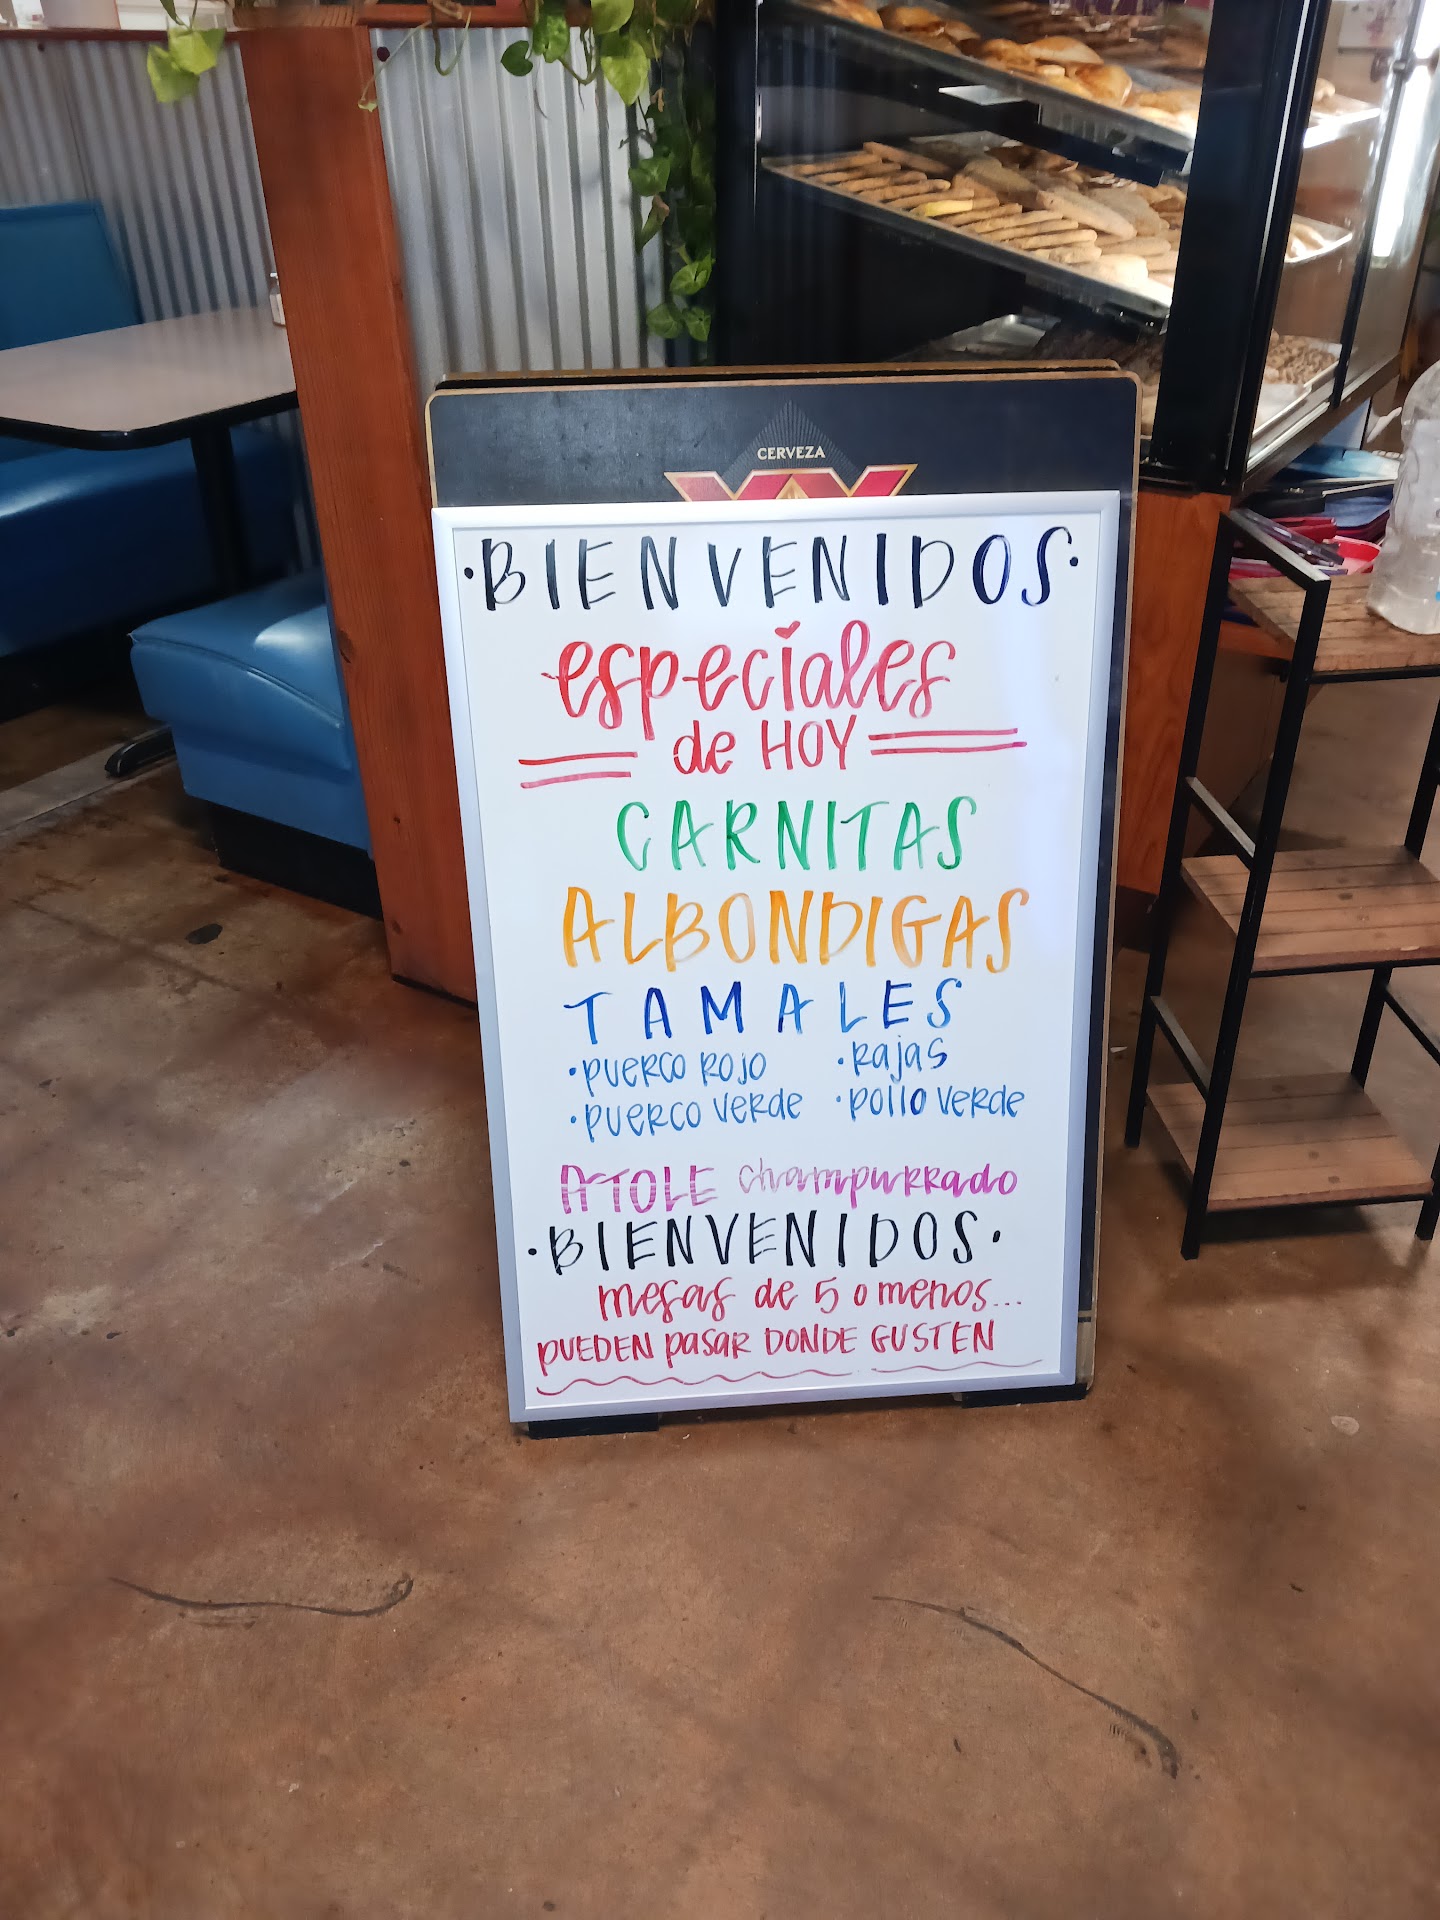 CERVEZA
XX
·BIENVENIDOS·
especiales
de HOY
CARNITAS
ALBONDIGAS
TAMALES
·PUERCO ROJO ·RAJAS
·PUERCO VERDE ·POLLO VERDE
ATOLE champurrado
·BIENVENIDOS·
mesas de 5 o menos...
PUEDEN pasar DONDE GUSTEN